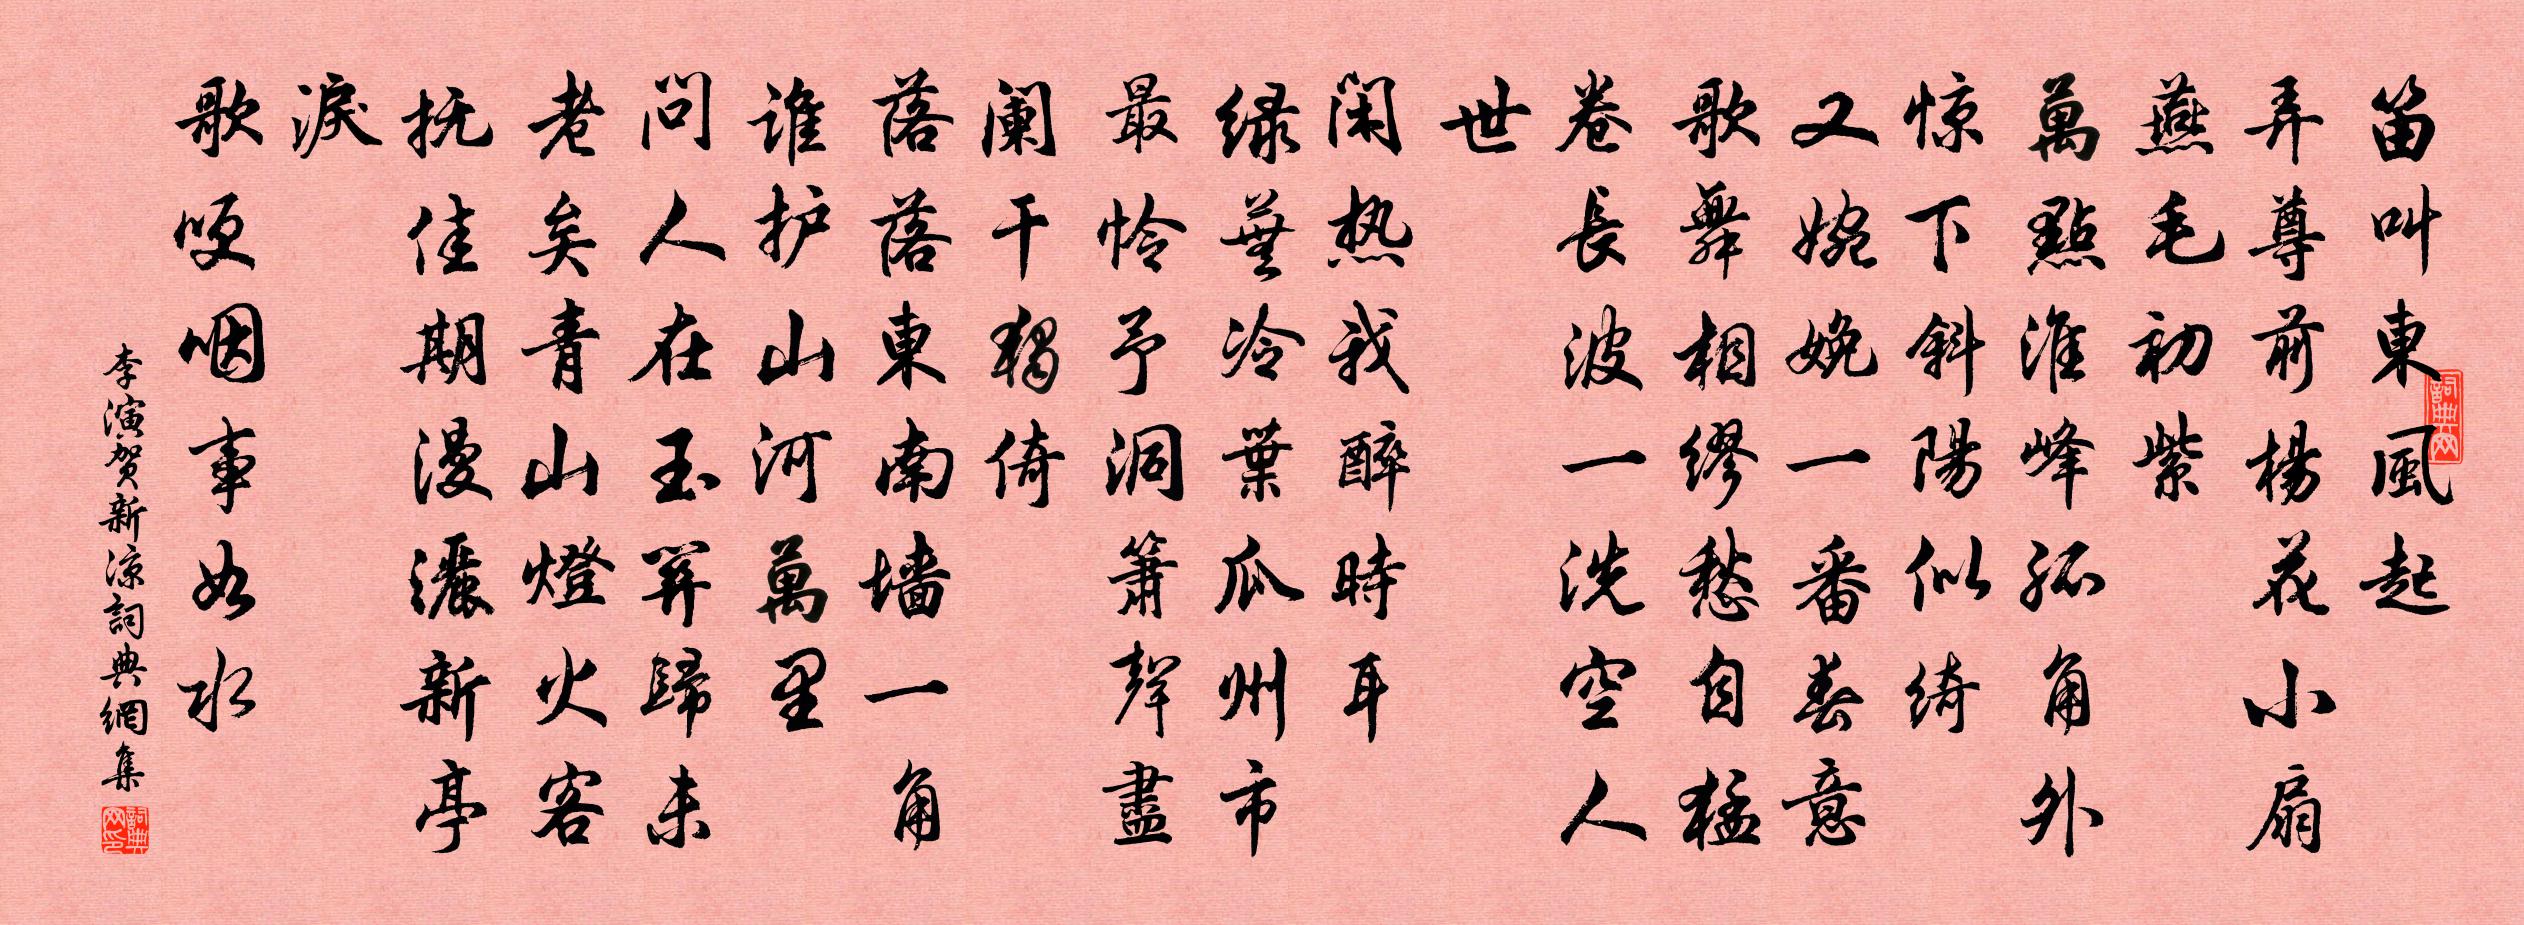 笛叫東風起
弄尊前楊花小扇
燕毛初紫
萬點淮峰孤角外
惊下斜陽似綺
又婉娩一番春意
歌舞相繆愁自猛
卷長波一洗空人
世
闲热我醉時耳
绿蕪冷葉瓜州市
最怜予洞箫聲盡
阑干独倚
落落東南墙一角
谁护山河萬里
问人在玉関歸未
老矣青山燈火客
抚佳期漫灑新亭
淚
歌哽咽事如水
李演贺新凉詞典網集
詞典网
詞典网印